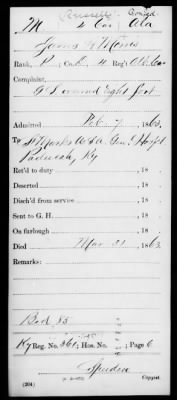 M 4 Cav. Ala
James
Rank, P ; Co. 4 Reg't Ala Cav
Complaint,
G S wound right foot
Admitted Feb 7, 1863.
To St Marks U.S.A. Gen'l Hosp'l
Paducah, Ky
Ret'd to duty , 18 .
Deserted , 18 .
Disch'd from service , 18 .
Sent to G. H. , 18 .
On furlough , 18 .
Died Mar 21, 1863.
Remarks:
Bed 85
Ky Reg. No. 361; Hos. No. ; Page 6
(204) Copyist.